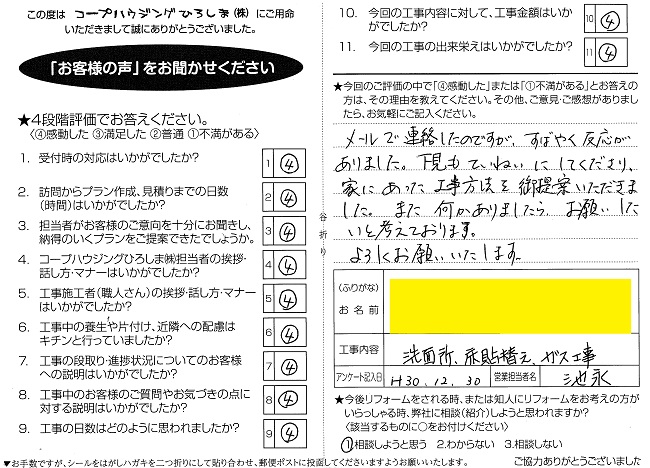 この度は コープハウジングひろしま(株) にご用命
いただきまして誠にありがとうございました。
「お客様の声」をお聞かせください
★4段階評価でお答えください。
〈④感動した ③満足した ②普通 ①不満がある〉
1. 受付時の対応はいかがでしたか?
1 ④
2. 訪問からプラン作成、見積りまでの日数
(時間)はいかがでしたか?
2 ④
3. 担当者がお客様のご意向を十分にお聞きし、
納得のいくプランをご提案できたでしょうか。
3 ④
4. コープハウジングひろしま㈱担当者の挨拶・
話し方・マナーはいかがでしたか?
4 ④
5. 工事施工者(職人さん)の挨拶・話し方・マナー
はいかがでしたか?
5 ④
6. 工事中の養生や片付け、近隣への配慮は
キチンと行っていましたか?
6 ④
7. 工事の段取り・進捗状況についてのお客様
への説明はいかがでしたか?
7 ④
8. 工事中のお客様のご質問やお気づきの点に
対する説明はいかがでしたか?
8 ④
9. 工事の日数はどのように思われましたか?
9 ④
谷折り
10. 今回の工事内容に対して、工事金額はいか
がでしたか?
10 ④
11. 今回の工事の出来栄えはいかがでしたか?
11 ④
★今回のご評価の中で「④感動した」または「①不満がある」とお答えの
方は、その理由を教えてください。その他、ご意見・ご感想がありました
ら、お気軽にご記入ください。
メールで連絡したのですが、すばやく反応が
ありました。下見もていねいにしてくださり、
家にあった工事方法を御提案いただきま
した。また何かありましたら、お願いした
いと考えております。
よろしくお願いいたします。
(ふりがな)
お名前
工事内容
洗面所、床貼替え、ガス工事
アンケート記入日 H30.12.30 営業担当者名 池永
★今後リフォームをされる時、または知人にリフォームをお考えの方が
いらっしゃる時、弊社に相談(紹介)しようと思われますか?
〈該当するものに○をお付けください〉
①相談しようと思う 2.わからない 3.相談しない
▼お手数ですが、シールをはがしハガキを二つ折りにして貼り合わせ、郵便ポストに投函してくださいますようお願いいたします。
ご協力ありがとうございました